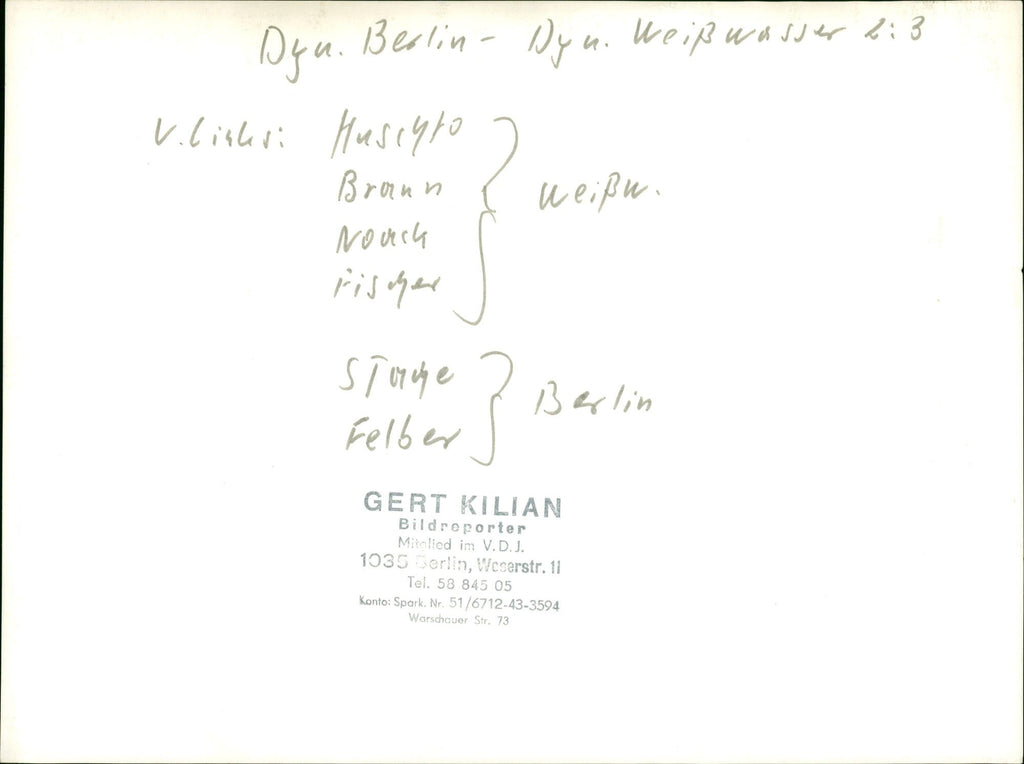 Dyn. Berlin - Dyn. Weißwasser 2:3
V. links: Huschto
Braun
Noack
Fischer
Weißw.
Stache
Felber
Berlin
GERT KILIAN
Bildreporter
Mitglied im V.D.J.
1035 Berlin, Weserstr. 11
Tel. 58 845 05
Konto: Spark. Nr. 51/6712-43-3594
Warschauer Str. 73